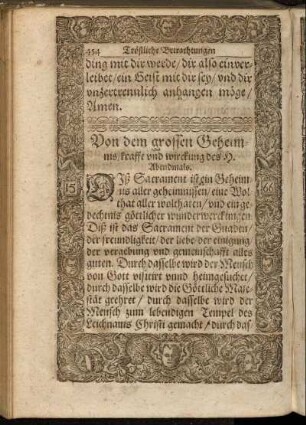 454 Tröstliche Betrachtungen
ding mit dir werde/ dir also einver-
leibet/ ein Geist mit dir sey/ vnd dir
vnzertrennlich anhangen möge/
Amen.
Von dem grossen Geheim
nis/ krafft vnd wirckung des H.
Abendmals.
DIß Sacrament ist ein Geheim
nis aller geheimnissen/ eine Wol
that aller wolthaten/ vnd ein ge
dechtnis göttlicher wunderwercken:
Diß ist das Sacrament der Gnaden/
der freundligkeit/ der liebe/ der einigung
der vergebung vnd gemeinschafft alles
guten. Durch dasselbe wird der Mensch
von Gott visitirt vnnd heimgesuchet/
durch dasselbe wird die Göttliche Maje-
stät geehret/ durch dasselbe wird der
Mensch zum lebendigen Tempel des
Leichnams Christi gemacht/ durch das-
15
66